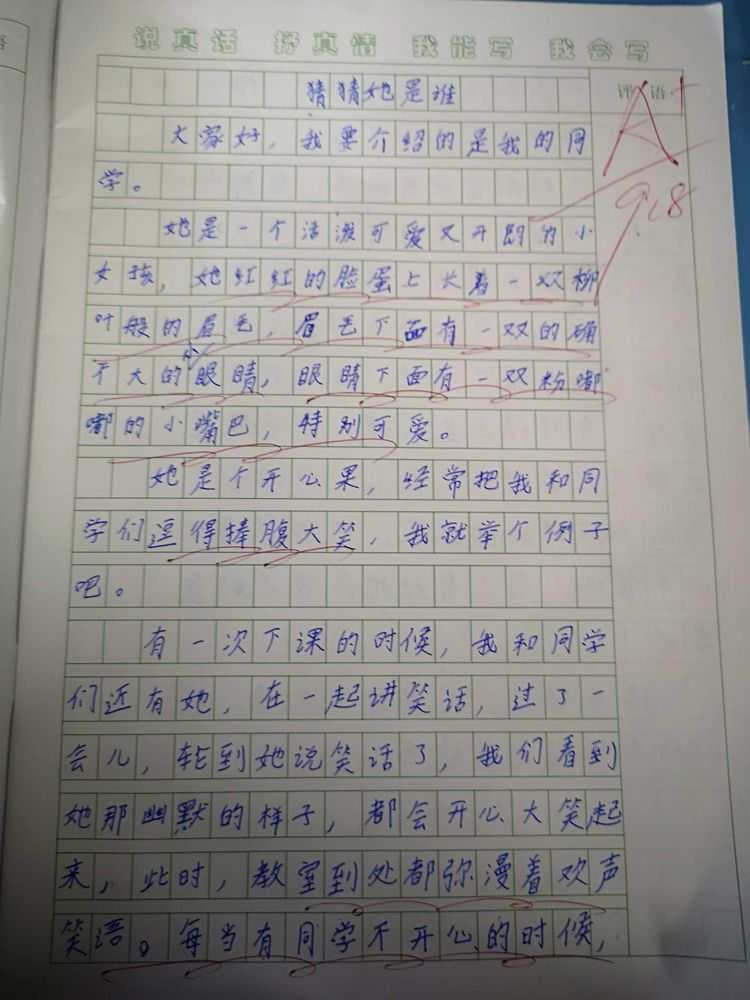 说真话 抒真情 我能写 我会写
评语
猜猜她是谁
A+
大家好，我要介绍的是我的同
学。
9.8
她是一个活泼可爱又开朗的小
女孩，她红红的脸蛋上长着一双柳
叶般的眉毛，眉毛下面有一双的确
不大的眼睛，眼睛下面有一双粉嘟
嘟的小嘴巴，特别可爱。
她是个开心果，经常把我和同
学们逗得捧腹大笑，我就举个例子
吧。
有一次下课的时候，我和同学
们还有她，在一起讲笑话，过了一
会儿，轮到她说笑话了，我们看到
她那幽默的样子，都会开心大笑起
来，此时，教室到处都弥漫着欢声
笑语。每当有同学不开心的时候，